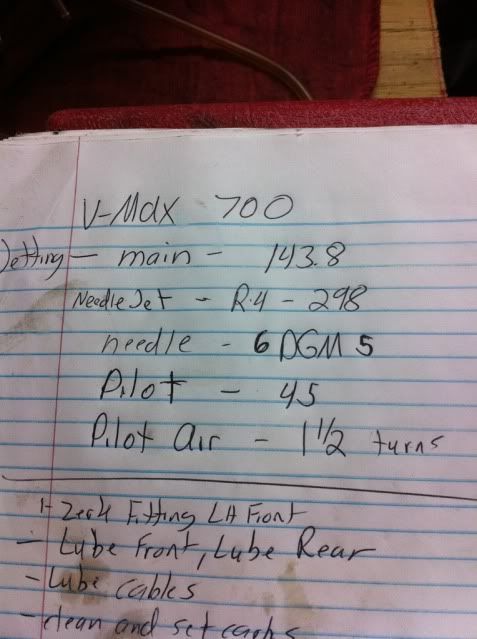 V-Max 700
Jetting - main - 143.8
Needle Jet - R.4 - 298
needle - 6DGM5
Pilot - 45
Pilot Air - 1 1/2 turns
1- Zerk Fitting LH Front
- Lube Front, Lube Rear
- Lube cables
- clean and set carbs